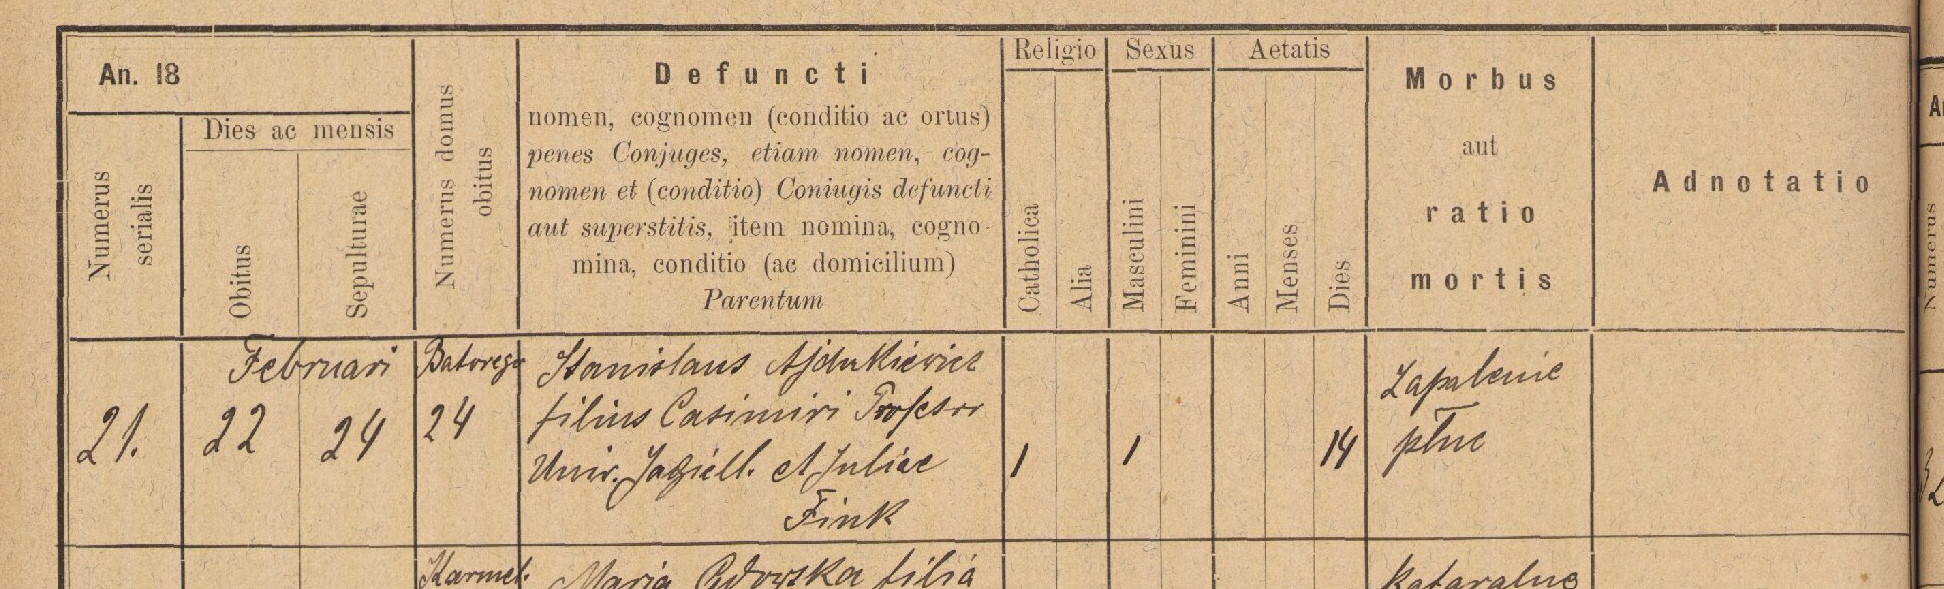 An. 18
Dies ac mensis
Numerus serialis
Obitus
Sepulturae
Numerus domus obitus
Defuncti
nomen, cognomen (conditio ac ortus)
penes Conjuges, etiam nomen, cog-
nomen et (conditio) Coniugis defuncti
aut superstitis, item nomina, cogno-
mina, conditio (ac domicilium)
Parentum
Religio
Catholica
Alia
Sexus
Masculini
Feminini
Aetatis
Anni
Menses
Dies
Morbus
aut
ratio
mortis
Adnotatio
Numerus
Februari
21. 22 24
Batorego
24
Stanislaus Ajdukiewicz
filius Casimiri Profesor
Univ. Jagiell. et Juliae
Fink
1 1 14
Zapalenie
płuc
Karmel.
Maria filia
Kataralne